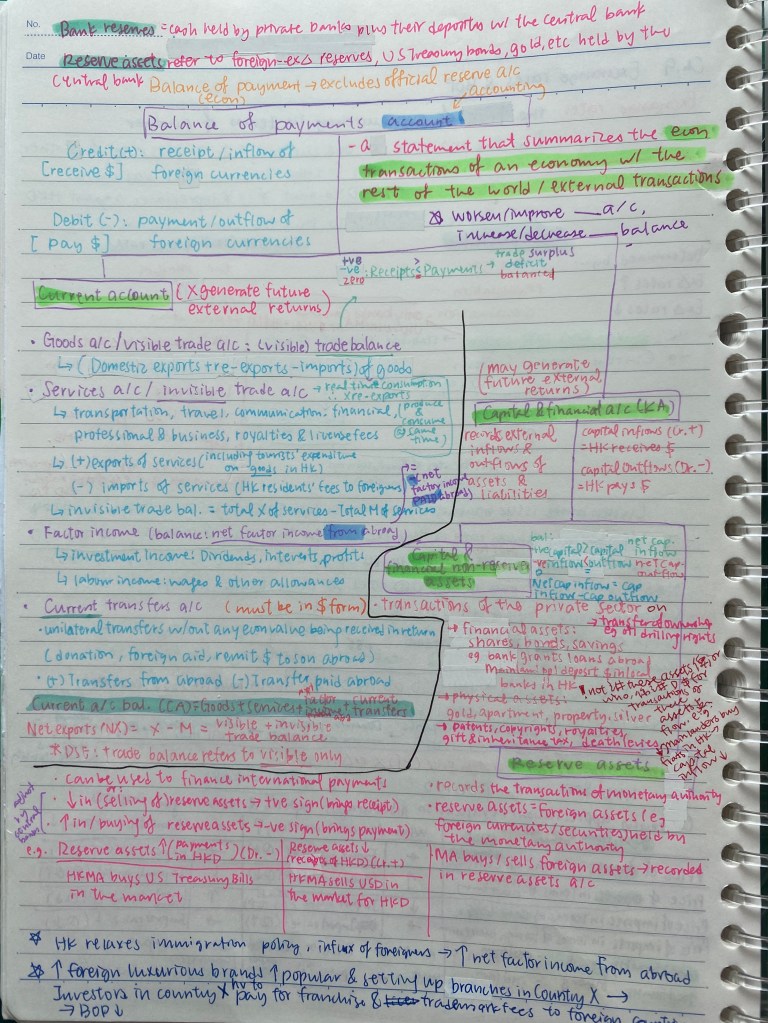 No. Bank reserves = cash held by private banks plus their deposits w/ the central bank
Date Reserve assets refer to foreign-exΔ reserves, US Treasury bonds, gold, etc held by the
central bank
Balance of payment → excludes official reserve a/c
(econ)
accounting
Balance of payments account
Credit(+): receipt/inflow of
[receive $] foreign currencies
Debit (-): payment/outflow of
[pay $] foreign currencies
- a statement that summarizes the econ
transactions of an economy w/ the
rest of the world/external transactions
☆ worsen/improve ___ a/c,
increase/decrease ___ balance
+ve
-ve : Receipts > Payments → trade surplus
zero
deficit
balanced
Current account (X generate future
external returns)
• Goods a/c/visible trade a/c: (visible) trade balance
↳ (Domestic exports + re-exports - imports) of goods
• Services a/c/ invisible trade a/c → real time consumption
∴ X re-exports
(produce
&
consume
@ same
time)
↳ transportation, travel, communication, financial,
professional & business, royalties & license fees
↳ (+) exports of services (including tourists' expenditure
on goods in HK)
(-) imports of services (HK residents' fees to foreigners
↳ invisible trade bal. = total X of services - Total M of services
(net
factor income
abroad)
• Factor income (balance: net factor income from abroad)
↳ investment income: Dividends, interests, profits
↳ labour income: wages & other allowances
• Current transfers a/c (must be in $ form)
• unilateral transfers w/out any econ value being received in return
(donation, foreign aid, remit $ to son abroad)
• (+) Transfers from abroad (-) Transfer, paid abroad
Current a/c bal. (CA) = Goods + services + factor income + current transfers
Net exports (NX) = X - M = visible + invisible
trade balance
* DSE: trade balance refers to visible only
(may generate
future external
returns)
Capital & financial a/c (KA)
records external
inflows &
outflows of
assets &
liabilities
capital inflows (Cr.+)
= HK receives $
capital outflows (Dr.-)
= HK pays $
Capital &
financial non-reserve
assets
bal:
+ve capital > capital net cap. inflow
-ve inflow < outflow net cap. outflow
Net cap inflow = cap
inflow - cap outflow
• transactions of the private sector on
→ financial assets:
shares, bonds, savings
eg bank grants loans abroad
mainlanders' deposit in local
banks in HK
→ transfer of ownership
eg oil drilling rights
→ physical assets:
gold, apartment, property, silver
→ patents, copyrights, royalties,
gift & inheritance tax, death levies
mainlanders buy
flats in HK →
capital
inflow
Reserve assets
• can be used to finance international payments
• ↓ in (selling of) reserve assets → +ve sign (brings receipt)
• ↑ in/buying of reserve assets → -ve sign (brings payment)
e.g. Reserve assets ↑ (payments in HKD) (Dr.-)
Reserve assets ↓
(receipts of HKD) (Cr.+)
HKMA buys US Treasury Bills
in the market
HKMA sells USD in
the market for HKD
• records the transactions of monetary authority
• reserve assets = foreign assets (eg
foreign currencies/securities) held by
the monetary authority
MA buys/sells foreign assets → recorded
in reserve assets a/c
☆ HK relaxes immigration policy, influx of foreigners → ↑ net factor income from abroad
☆ ↑ foreign luxurious brands ↑ popular & setting up branches in Country X →
Investors in country X hv to pay for franchise & trademark fees to foreign
→ BOP ↓